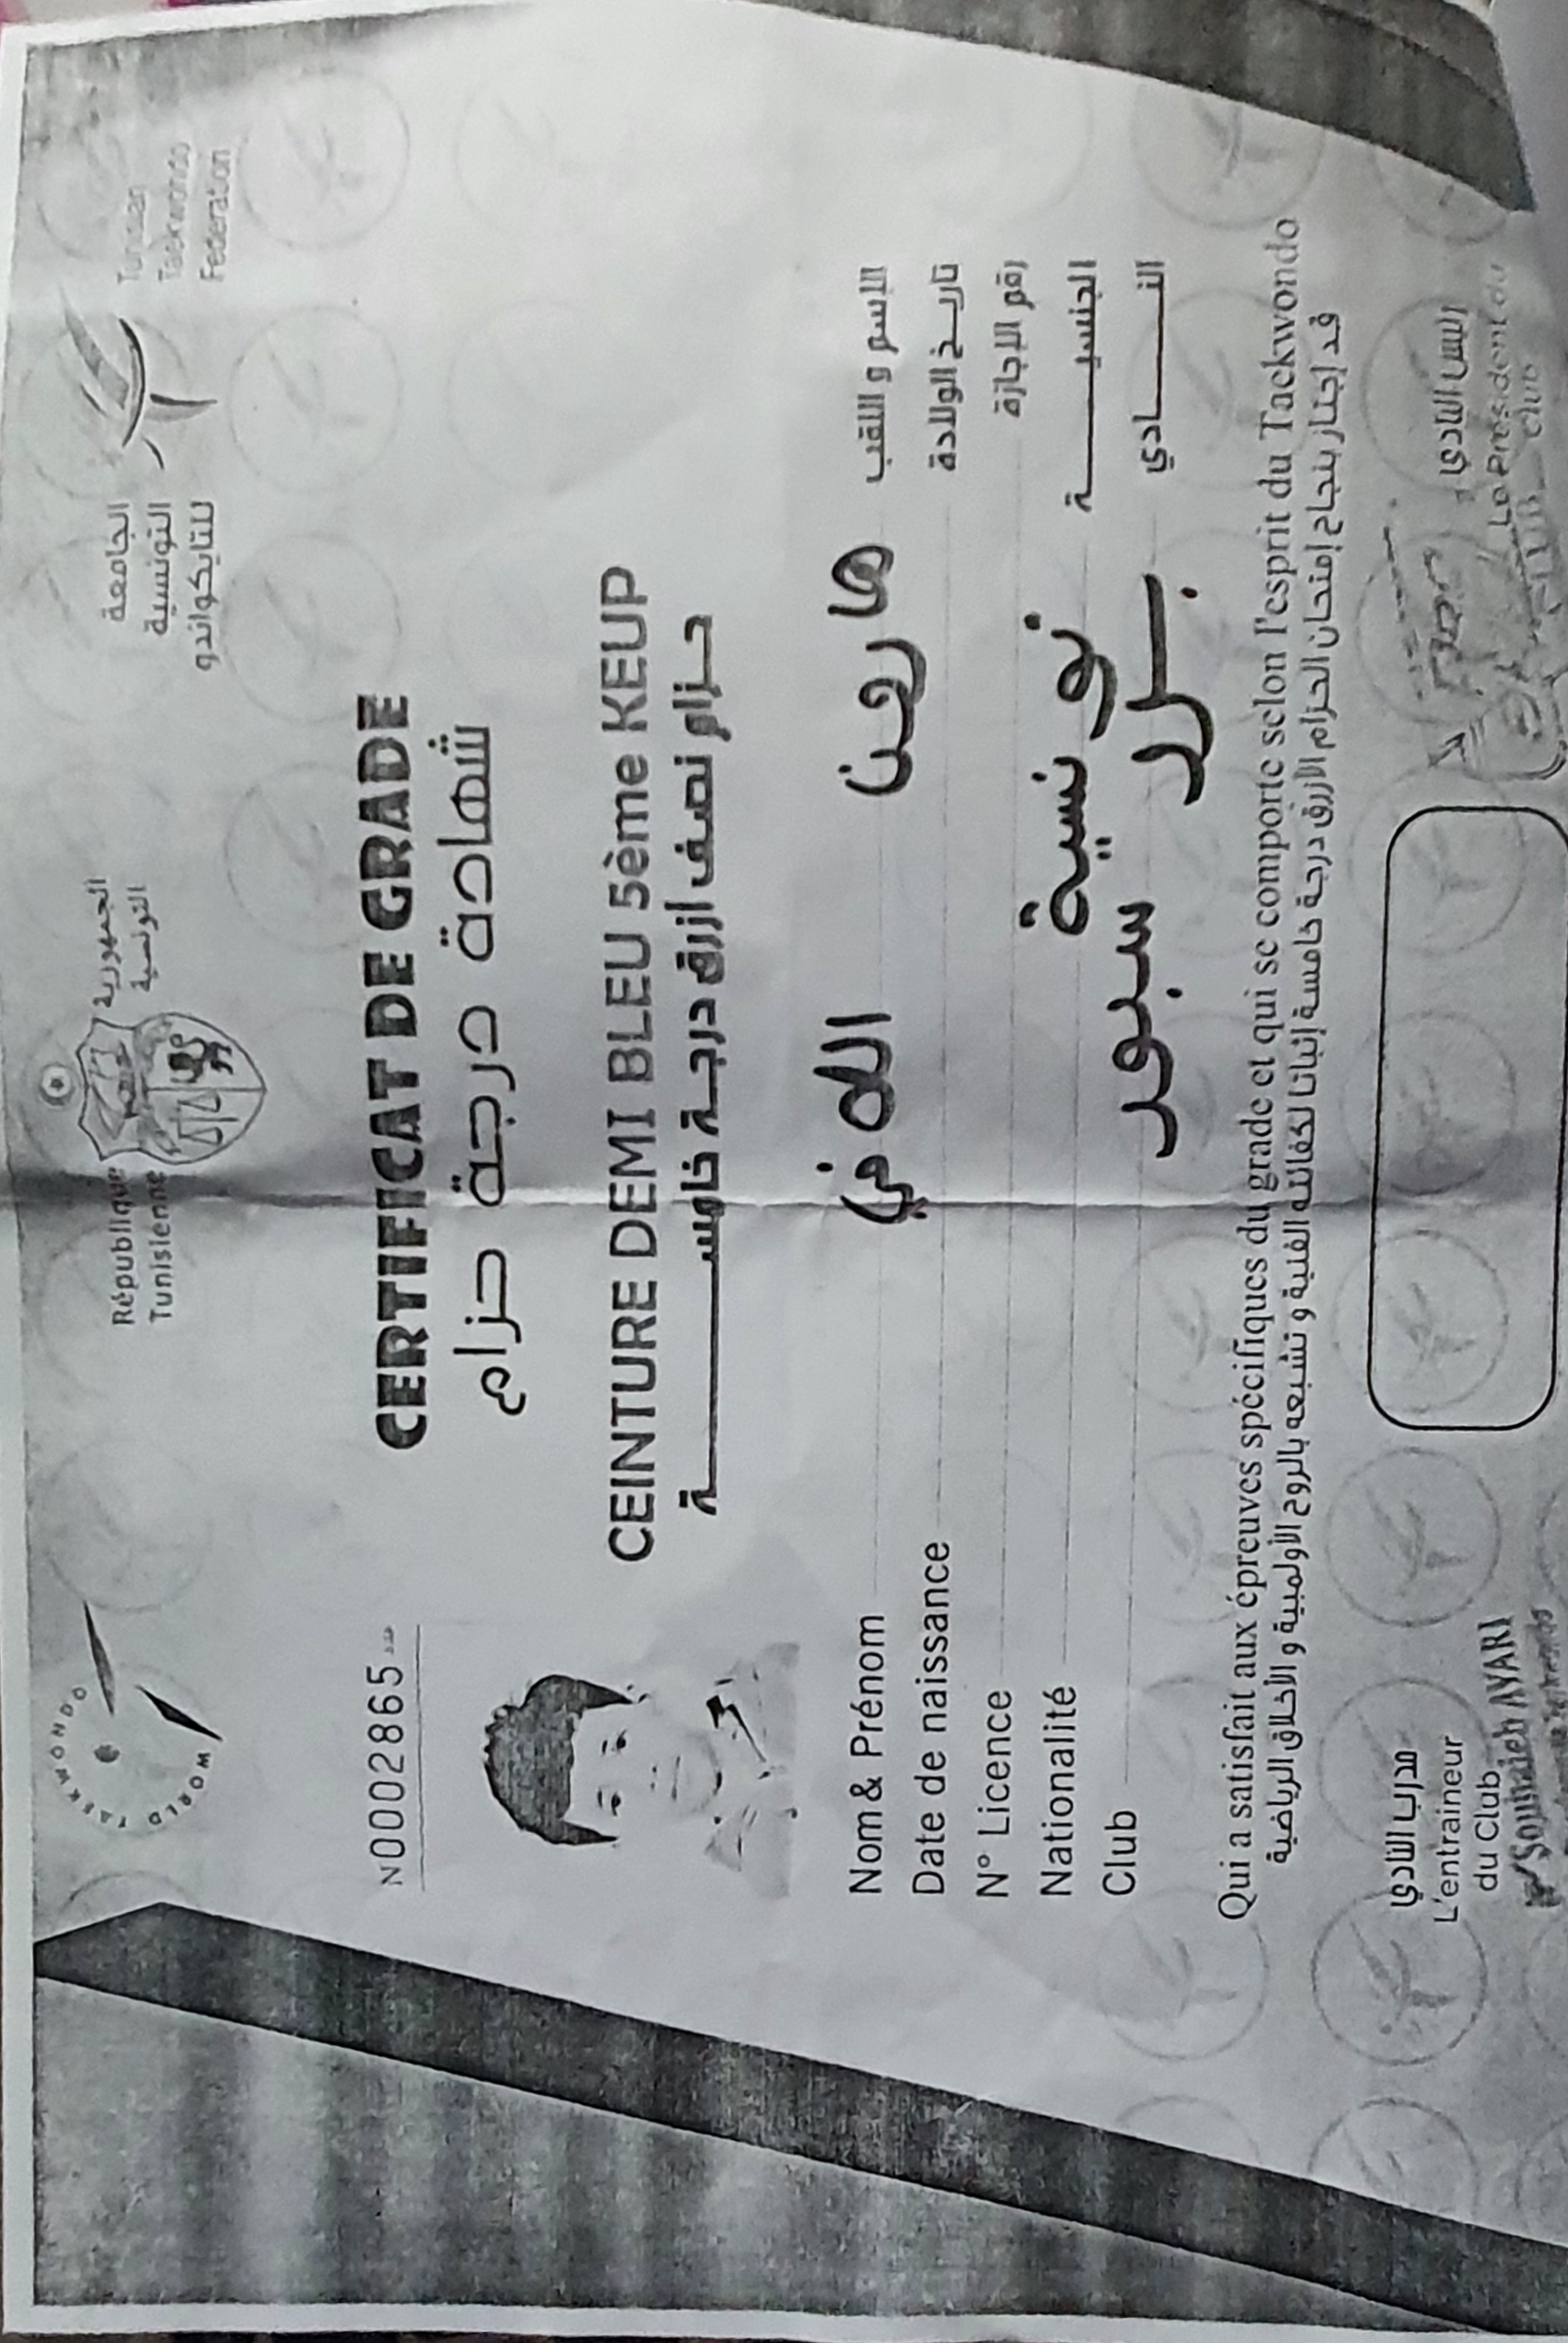 WORLD TAEKWONDO
République
Tunisienne
الجمهورية
التونسية
الجامعة
التونسية
للتايكواندو
Tunisian
Taekwondo
Federation
N0002865
CERTIFICAT DE GRADE
شهادة درجة حزام
CEINTURE DEMI BLEU 5ème KEUP
حزام نصف أزرق درجة خامسة
Nom & Prénom الإسم و اللقب
Date de naissance تاريخ الولادة
N° Licence رقم الإجازة
Nationalité تونسية الجنسية
Club سبور النادي
Qui a satisfait aux épreuves spécifiques du grade et qui se comporte selon l'esprit du Taekwondo
قد إجتاز بنجاح إمتحان الحزام الأزرق درجة خامسة إثباتا لكفائته الفنية و تشبعه بالروح الأولمبية و الأخلاق الرياضية
مدرب النادي
L'entraineur
du Club
Souhaieb AYARI
رئيس النادي
Le President du
Club